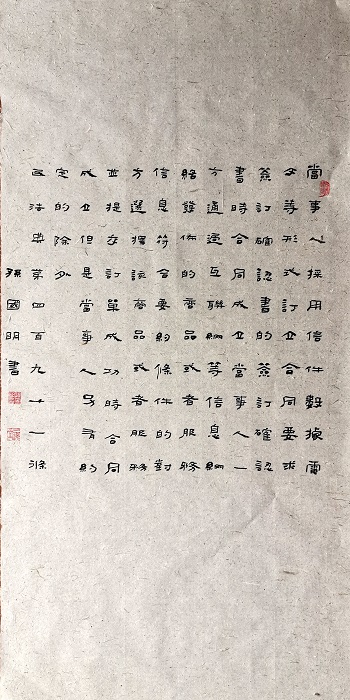 當事人採用信件數據電
文等形式訂立合同要求
簽訂確認書的簽訂確認
書時合同成立當事人一
方通過互聯網等信息網
絡發佈的商品或者服務
信息符合要約條件的對
方選擇該商品或者服務
並提交訂單成功時合同
成立但是當事人另有約
定的除外
民法典第四百九十一條
孫國明書